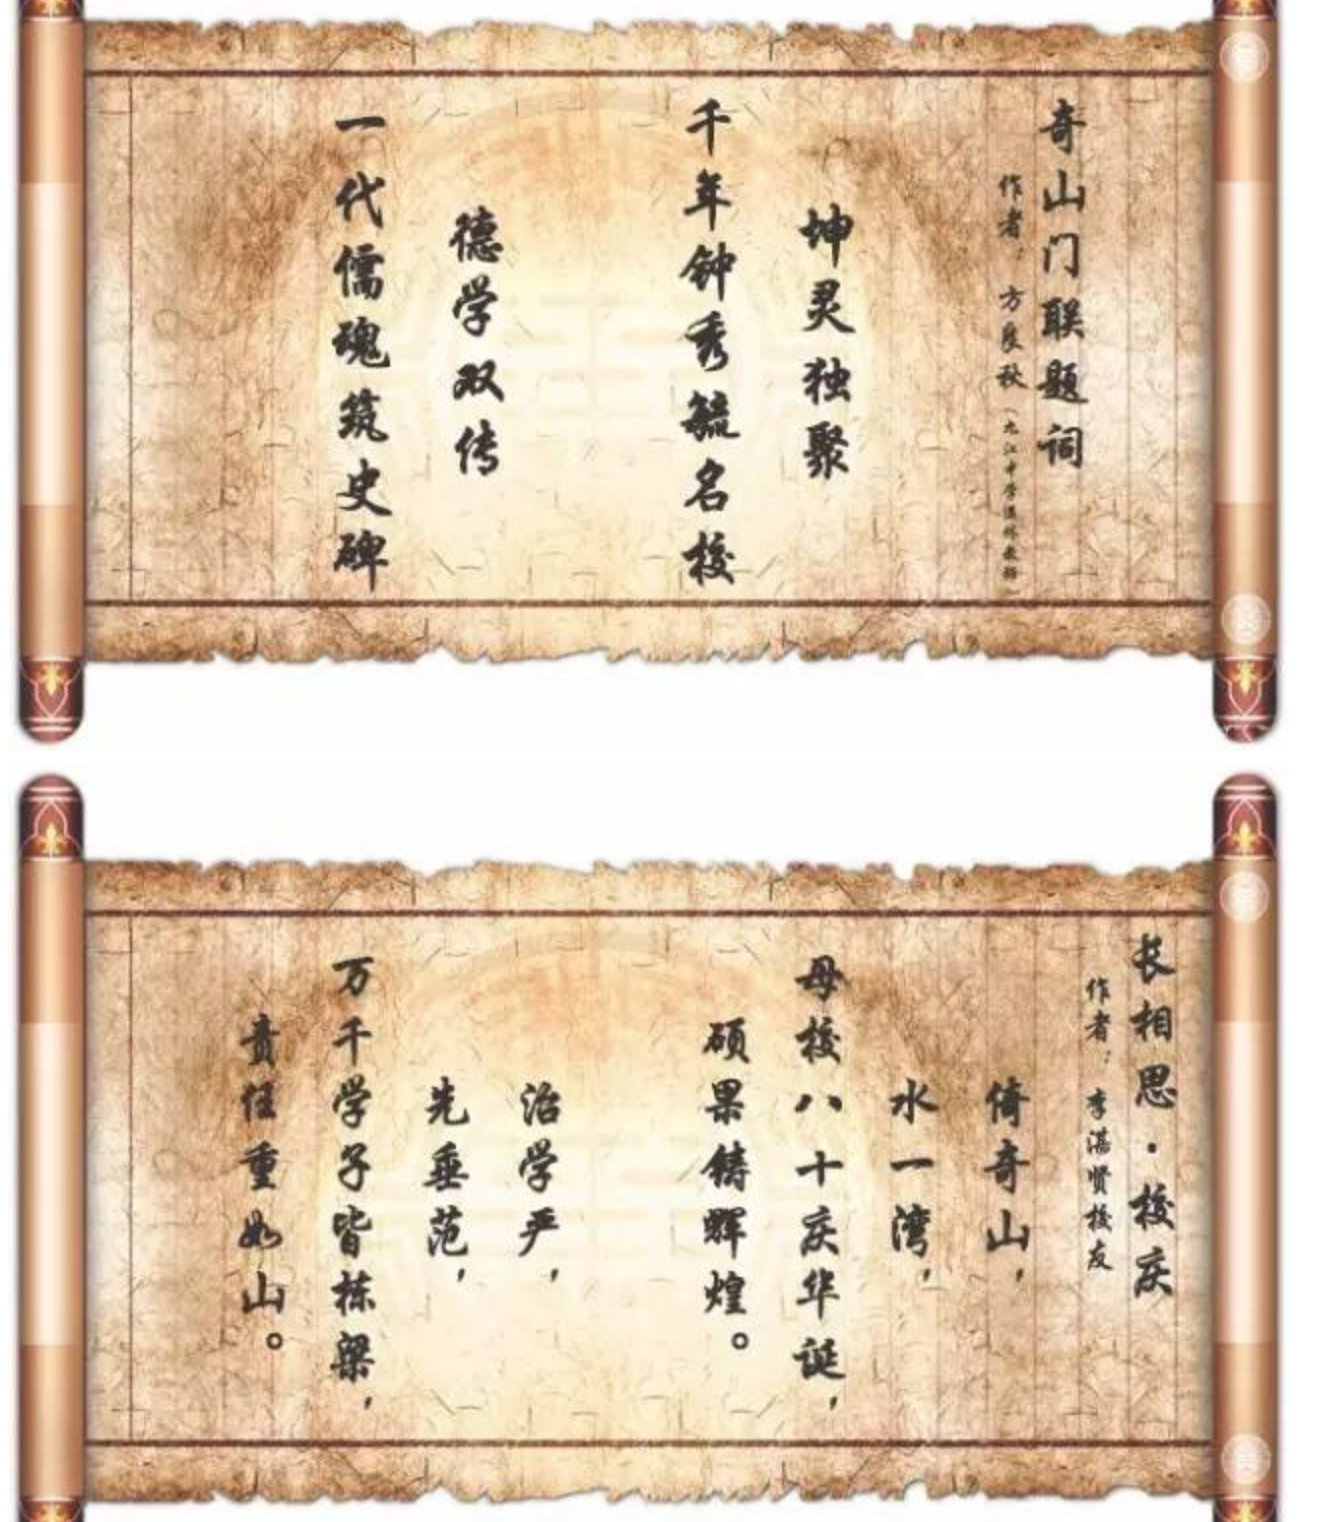 奇山门联题词
作者：方良秋（九江中学退休教师）
坤灵独聚
千年钟秀毓名校
德学双传
一代儒魂筑史碑
长相思·校庆
作者：李湛贤校友
倚奇山，
水一湾，
母校八十庆华诞，
硕果铸辉煌。
治学严，
先垂范，
万千学子皆栋梁，
责任重如山。